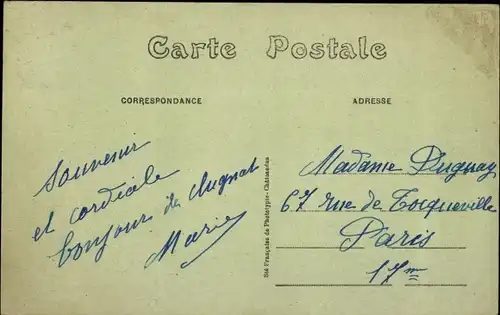 Carte Postale
CORRESPONDANCE
ADRESSE
Souvenir
et cordiale
bonjour de Clugnat
Marie
Sté Française de Phototypie - Châteaudun
Madame Duguay
67 rue de Tocqueville
Paris
17m